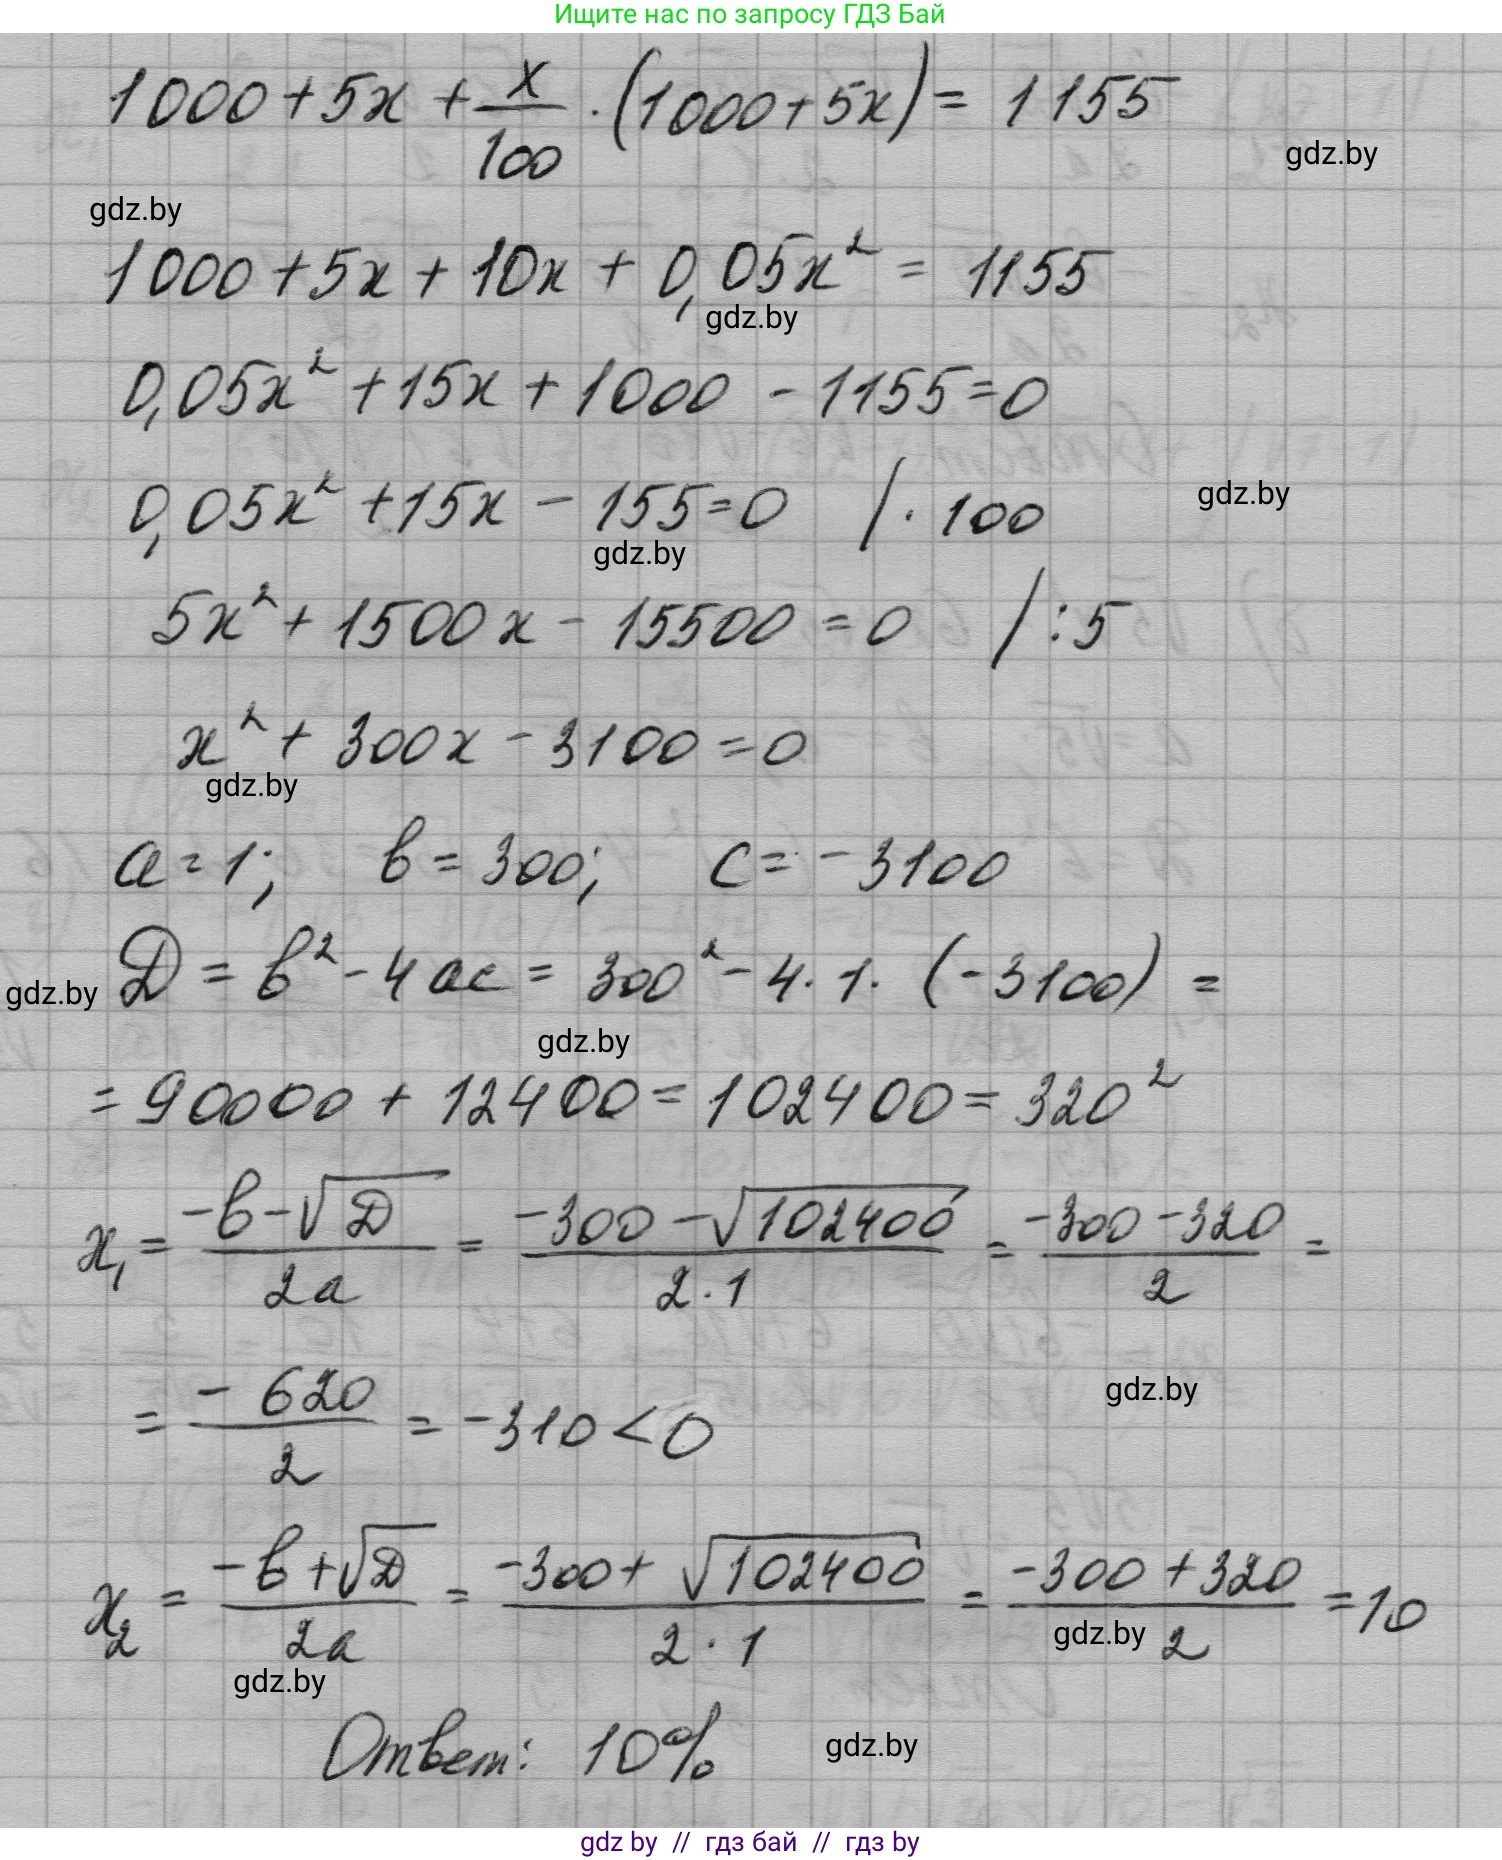 Ищите нас по запросу ГДЗ Бай
1000+5x + x/100 · (1000+5x) = 1155
gdz.by
gdz.by
1000+5x+10x+0,05x² = 1155
gdz.by
0,05x² +15x+1000 - 1155=0
0,05x² +15x - 155=0 / · 100
gdz.by
gdz.by
5x²+1500x - 15500=0 / :5
x²+ 300x - 3100=0
gdz.by
a=1; в=300; c=-3100
D = в²-4ac = 300²-4·1·(-3100) =
gdz.by
gdz.by
= 90000 + 12400=102400=320²
x₁ = (-в-√D)/2a = (-300-√102400)/2·1 = (-300-320)/2 =
= -620/2 = -310<0
gdz.by
x₂ = (-в+√D)/2a = (-300+√102400)/2·1 = (-300+320)/2 =10
gdz.by
gdz.by
Ответ: 10%
gdz.by
gdz by // гдз бай // гдз by